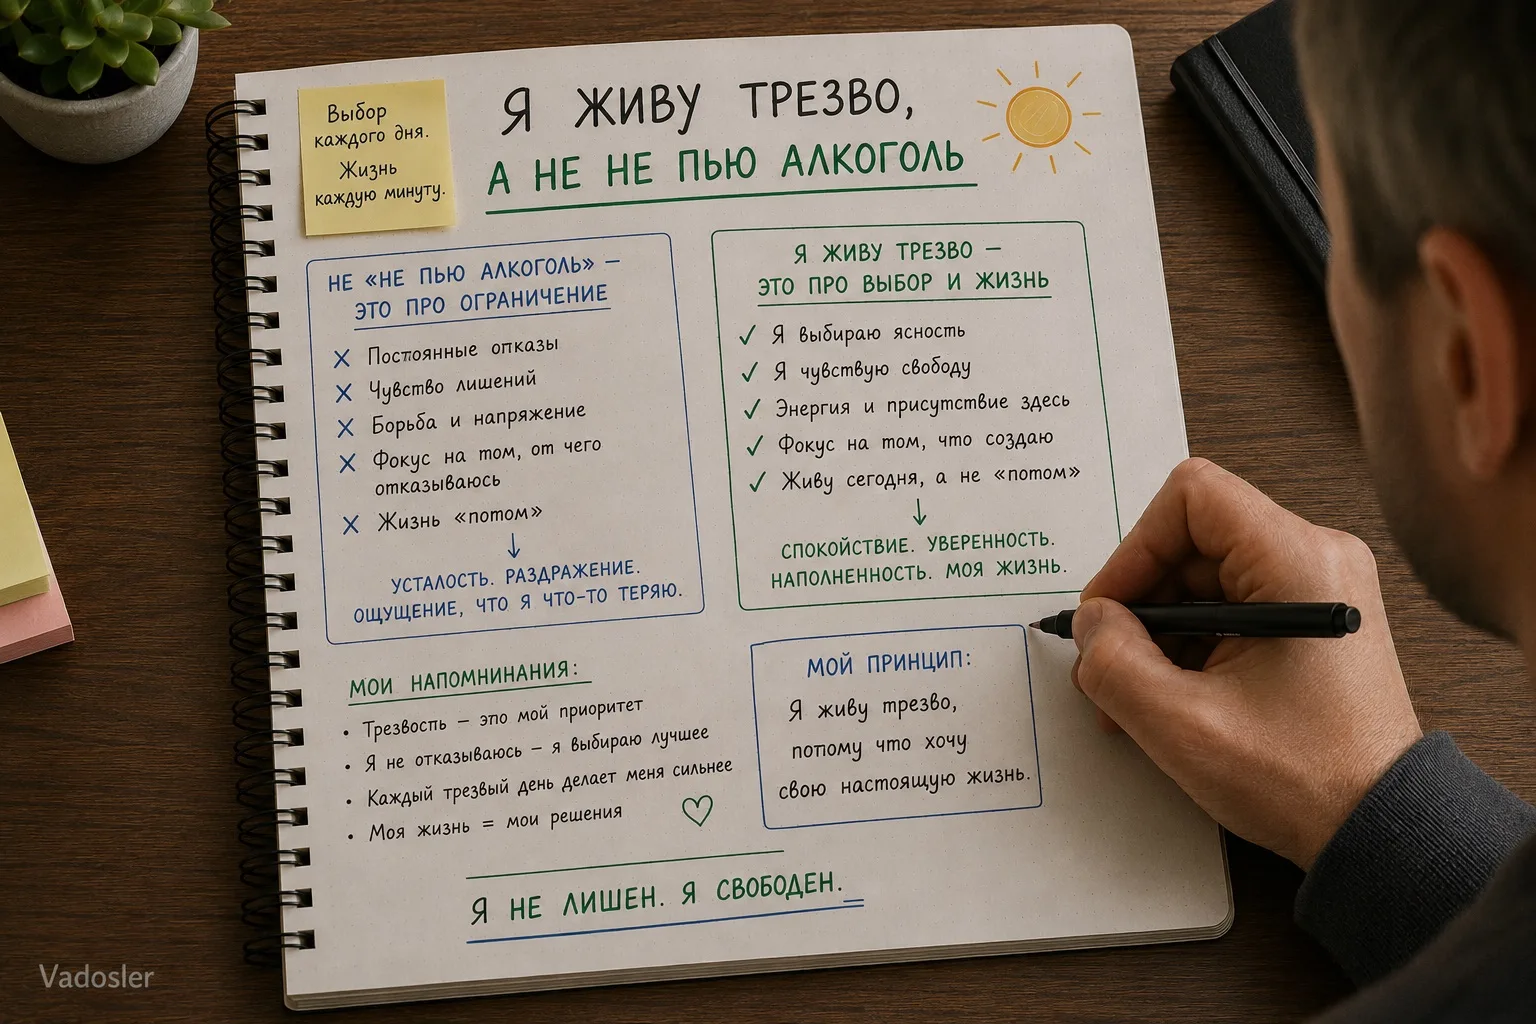 Выбор
каждого дня.
Жизнь
каждую минуту.
Я ЖИВУ ТРЕЗВО,
А НЕ НЕ ПЬЮ АЛКОГОЛЬ
НЕ «НЕ ПЬЮ АЛКОГОЛЬ» –
ЭТО ПРО ОГРАНИЧЕНИЕ
✗ Постоянные отказы
✗ Чувство лишений
✗ Борьба и напряжение
✗ Фокус на том, от чего
отказываюсь
✗ Жизнь «потом»
↓
УСТАЛОСТЬ. РАЗДРАЖЕНИЕ.
ОЩУЩЕНИЕ, ЧТО Я ЧТО-ТО ТЕРЯЮ.
Я ЖИВУ ТРЕЗВО –
ЭТО ПРО ВЫБОР И ЖИЗНЬ
✓ Я выбираю ясность
✓ Я чувствую свободу
✓ Энергия и присутствие здесь
✓ Фокус на том, что создаю
✓ Живу сегодня, а не «потом»
↓
СПОКОЙСТВИЕ. УВЕРЕННОСТЬ.
НАПОЛНЕННОСТЬ. МОЯ ЖИЗНЬ.
МОИ НАПОМНИНАНИЯ:
• Трезвость – это мой приоритет
• Я не отказываюсь – я выбираю лучшее
• Каждый трезвый день делает меня сильнее
• Моя жизнь = мои решения
МОЙ ПРИНЦИП:
Я живу трезво,
потому что хочу
свою настоящую жизнь.
Я НЕ ЛИШЕН. Я СВОБОДЕН.
Vadosler